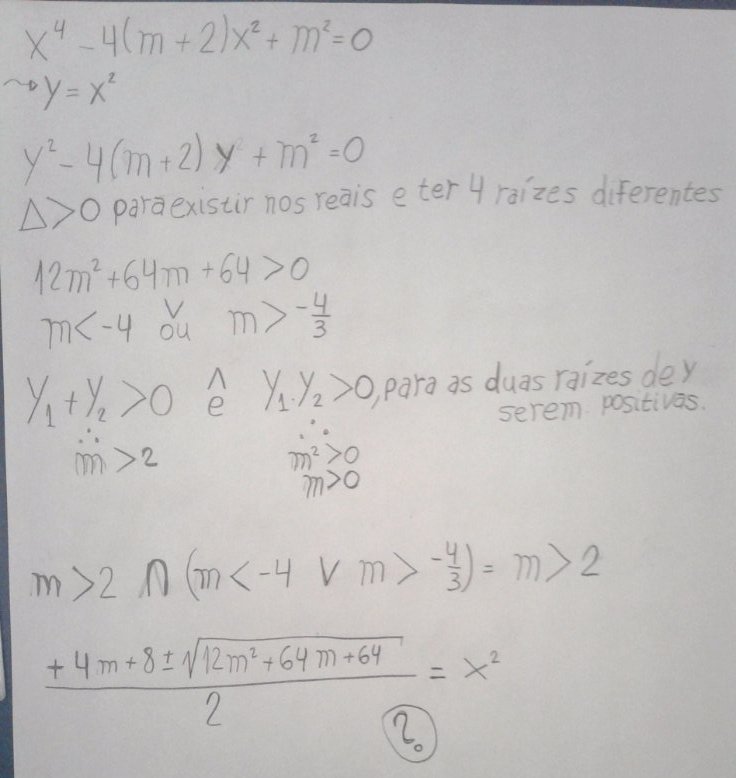 x⁴ - 4(m + 2)x² + m² = 0
⤳ y = x²
y² - 4(m+2) y + m² = 0
Δ>0 para existir nos reais e ter 4 raízes diferentes
12m² + 64m + 64 > 0
m < -4 ∨ ou m > -4/3
y₁ + y₂ > 0 ∧ e y₁ . y₂ > 0, para as duas raízes de y
serem positivas.
∴ ∴
m > 2 m² > 0
m > 0
m > 2 ∩ (m < -4 ∨ m > -4/3) = m > 2
+ 4m + 8 ± √12m² + 64m + 64 = x²
2
?